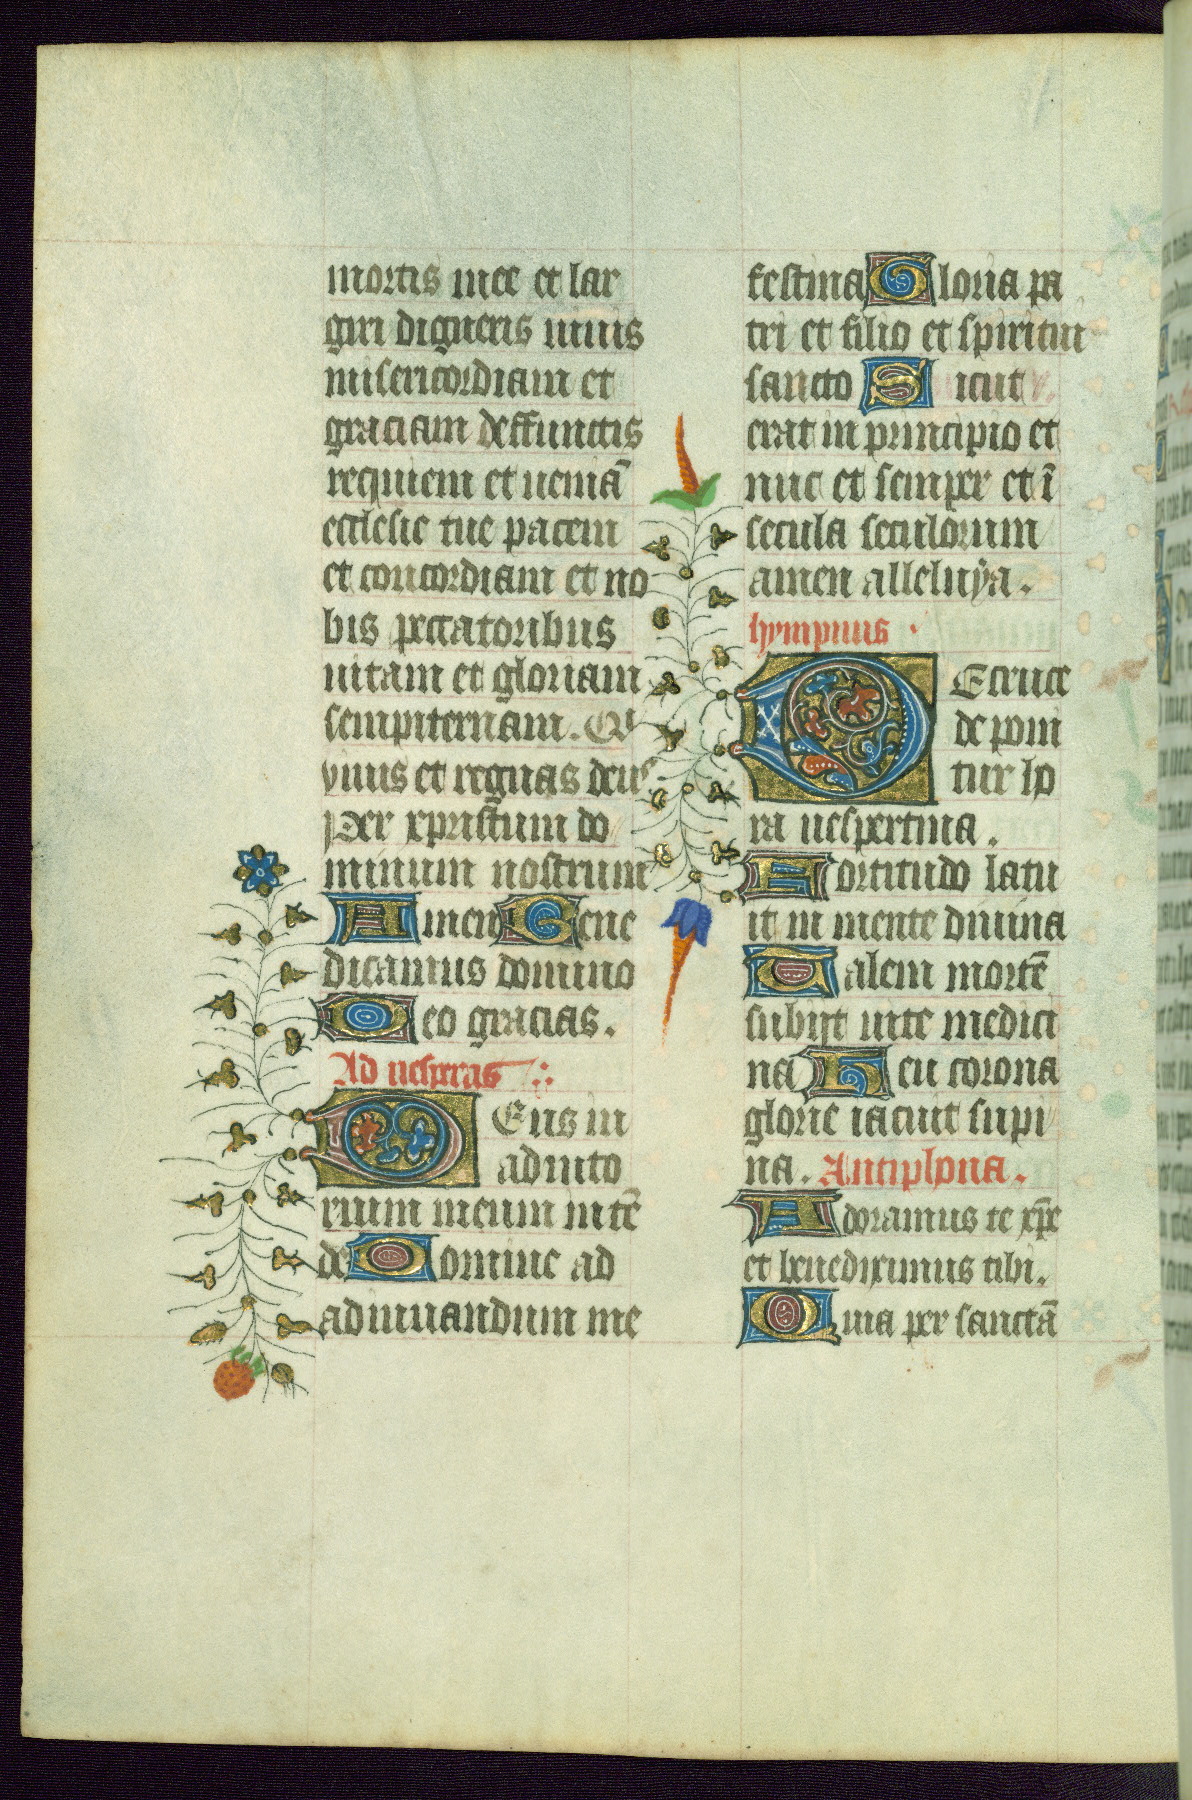 mortis mee et lar
giri digneris uiuis
misericordiam et
graciam deffunctis
requiem et ueniā
ecclesie tue pacem
et concordiam et no
bis peccatoribus
uitam et gloriam
sempiternam. Qi
viuis et regnas deus
Per xpristum do
minum nostrum
Amen Bene
dicamus domino
Deo gracias.
Ad uesperas
Deus in
adiuto
rium meum intē
de Domine ad
adiuuandum me
festina Gloria pa
tri et filio et spiritui
sancto Sicut
erat in principio et
nuc et semper et ī
secula seculorum
amen alleluya.
hympnus
De cruce
de poni
tur ho
ra uespertina.
Fortitudo latu
it in mente diuina
Talem mortē
subijt uite medici
na Heu corona
glorie iacuit supi
na. Antiphona.
Adoramus te xp̄e
et benediximus tibi.
Quia per sanctā